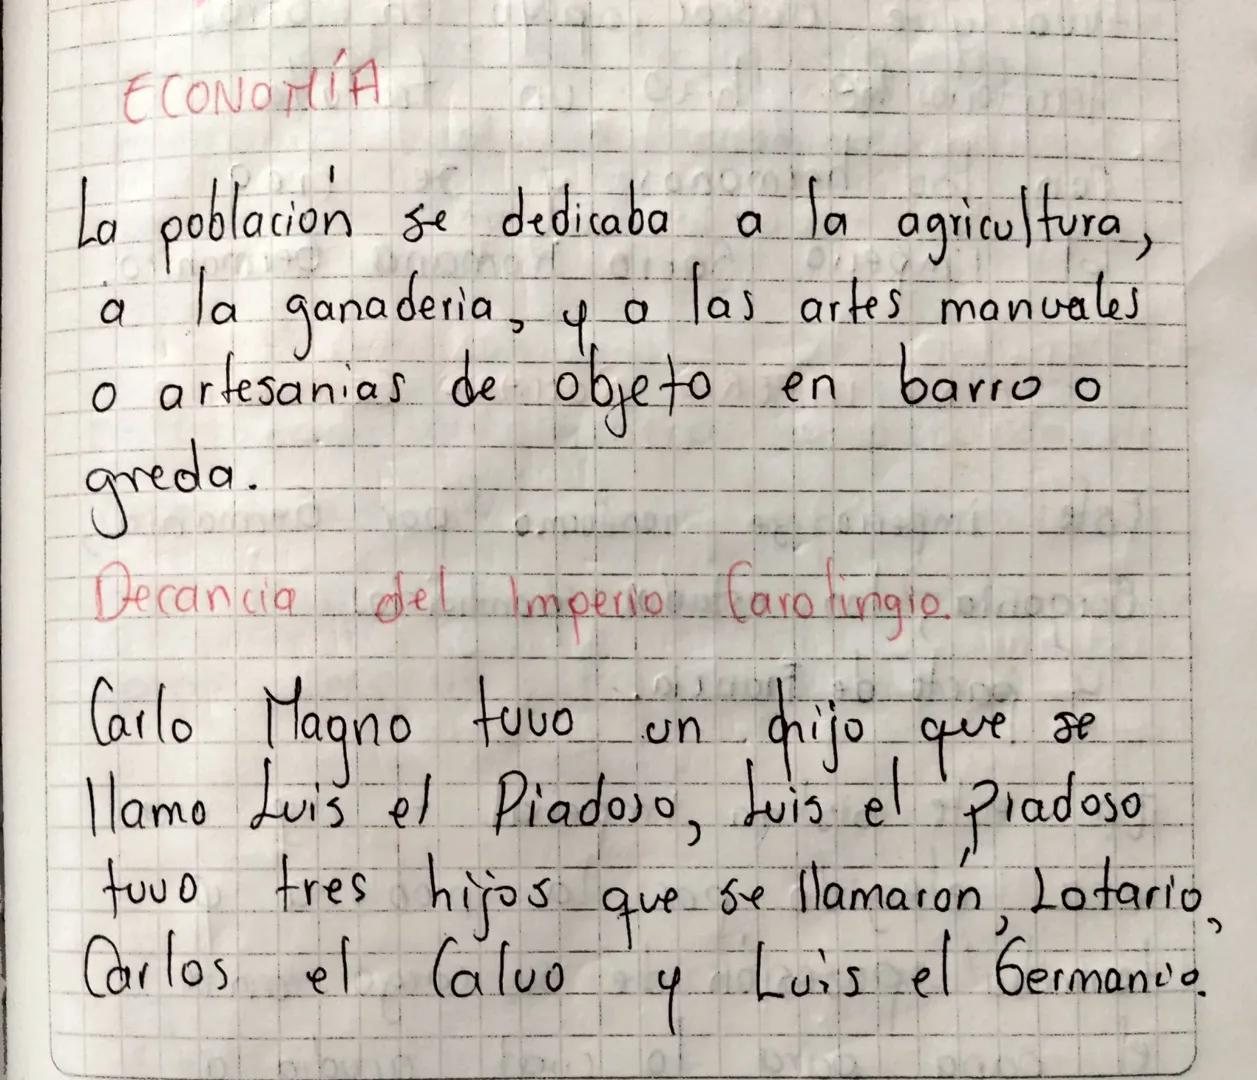 ECONOMÍA
La población se dedicaba a la agricultura,
a la ganaderia, y a las artes manuales
o artesanias de objeto en barro o
greda.
Decancia del Imperio Carolingio.
Carlo Magno tuvo un hijo que se
llamo Luis el Piadoso, Luis el piadoso
tuvo tres hijos que se llamaron, Lotario,
Carlos el Calvo y Luis el Germanio.